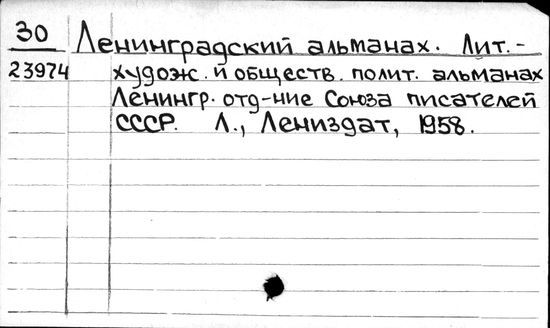 30 Ленинградский альманах. Лит.-
23974 худож. и обществ. полит. альманах
Ленингр. отд-ние Союза писателей
СССР. Л., Лениздат, 1958.